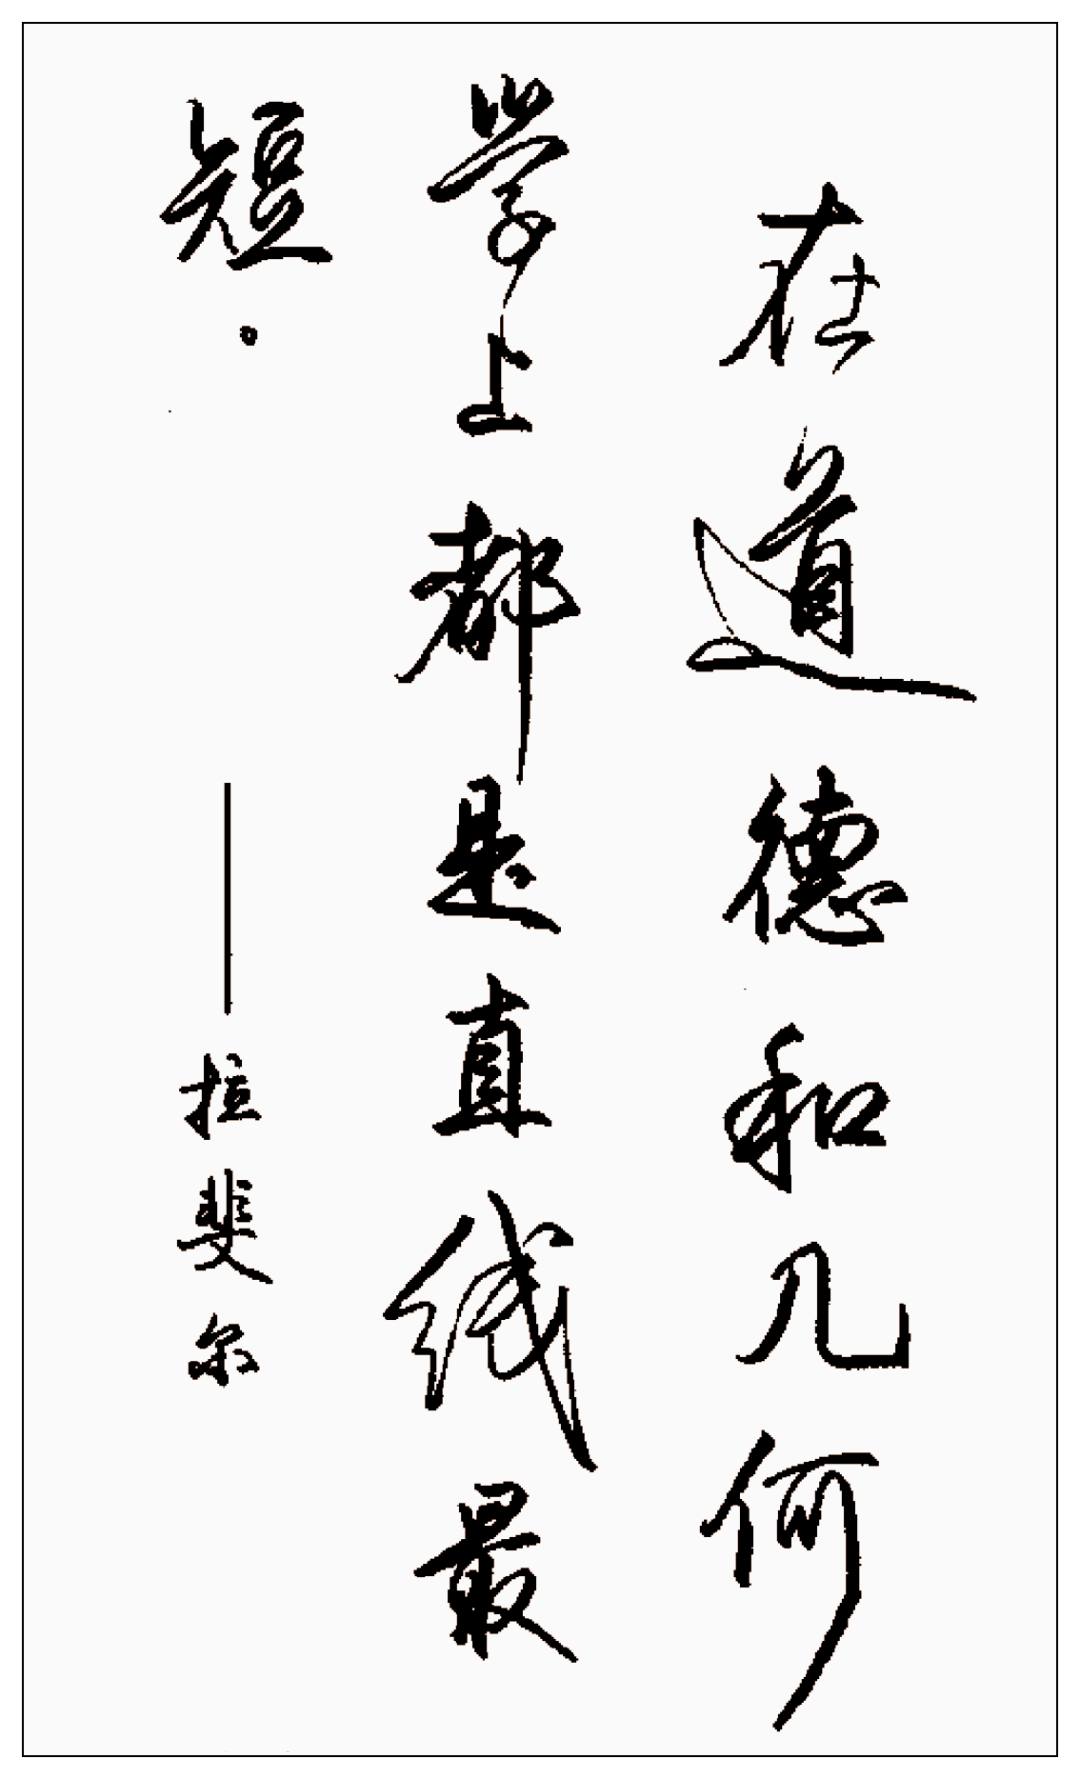 在道德和几何
学上都是直线最
短。
——拉斐尔